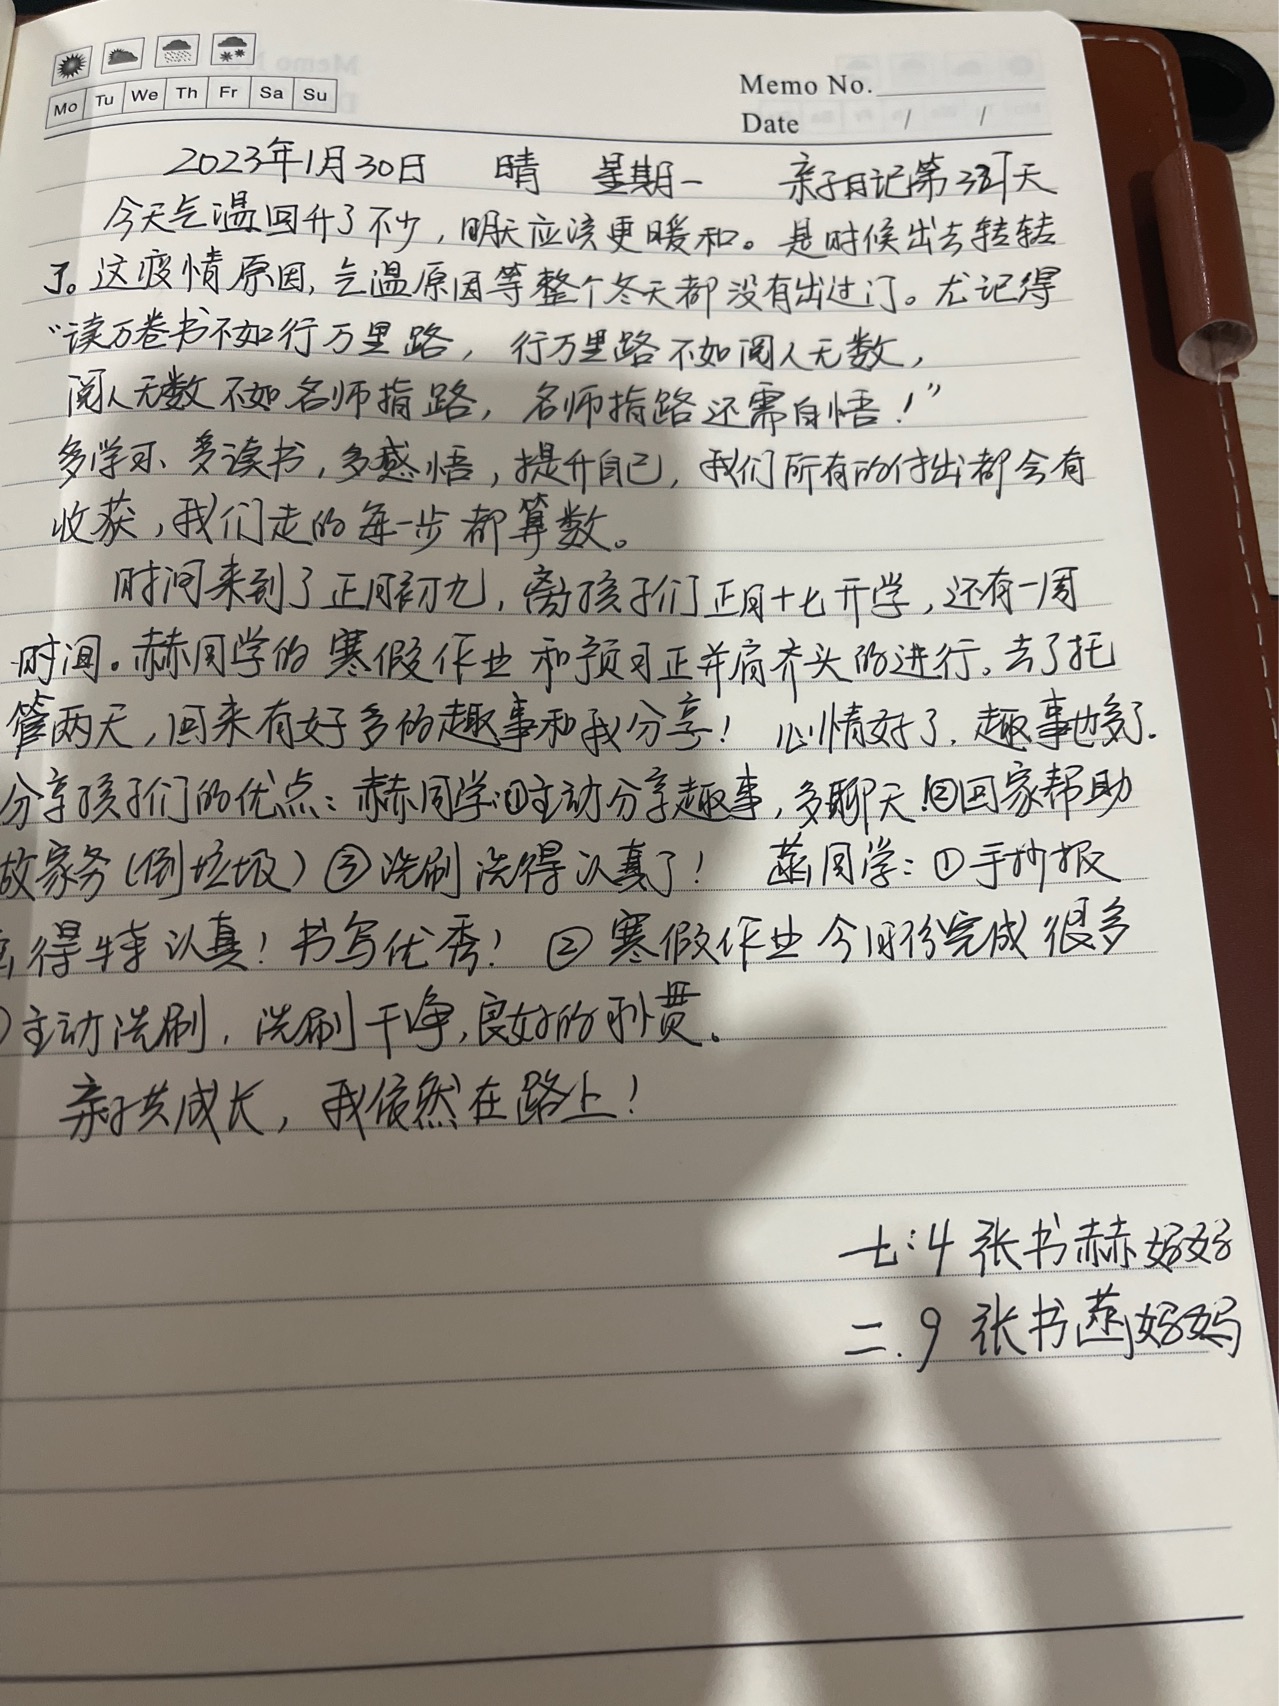 Mo Tu We Th Fr Sa Su
Memo No.
Date / /
2023年1月30日 晴 星期一 亲子日记第天
今天气温回升了不少，明天应该更暖和。是时候出去转转
了。这疫情原因，气温原因等整个冬天都没有出过门。尤记得
“读万卷书不如行万里路，行万里路不如阅人无数，
阅人无数不如名师指路，名师指路还需自悟！”
多学习、多读书，多感悟，提升自己，我们所有的付出都会有
收获，我们走的每一步都算数。
时间来到了正月初九，离孩子们正月十七开学，还有一周
时间。赫同学的寒假作业和预习正并肩齐头的进行。去了托
管两天，回来有好多的趣事和我分享！心情好了，趣事也多了.
分享孩子们的优点：赫同学：①主动分享趣事，多聊天！②回家帮助
做家务（倒垃圾）③洗刷洗得认真了！同学：①手抄报
得特认真！书写优秀！②寒假作业今日份完成很多
主动洗刷，洗刷干净，良好的习惯。
亲子共成长，我依然在路上！
七：4 张书赫妈妈
二.9 张书妈妈